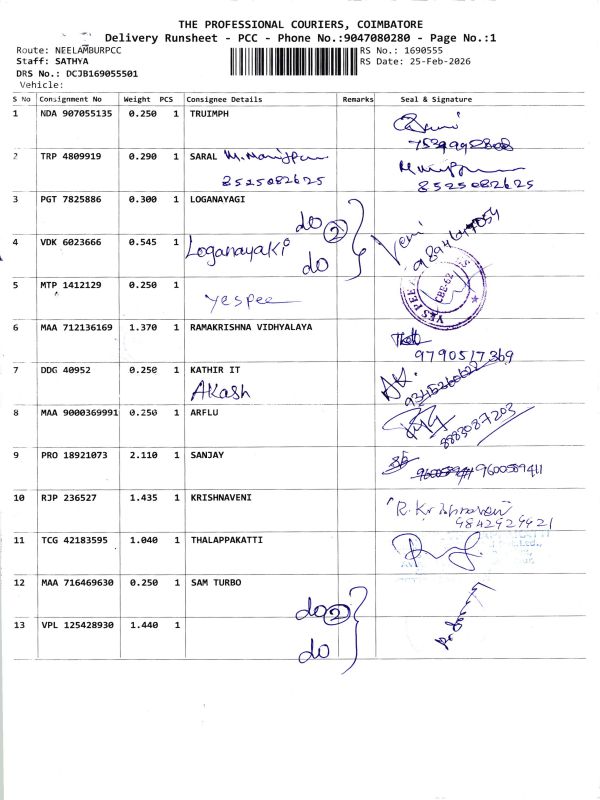 THE PROFESSIONAL COURIERS, COIMBATORE
Delivery Runsheet - PCC - Phone No.:9047080280 - Page No.:1
Route: NEELAMBURPCC RS No.: 1690555
Staff: SATHYA RS Date: 25-Feb-2026
DRS No.: DCJB169055501
Vehicle:
S No Consignment No Weight PCS Consignee Details Remarks Seal & Signature
1 NDA 907055135 0.250 1 TRUIMPH
2 TRP 4809919 0.290 1 SARAL
8525082625 8525082625
3 PGT 7825886 0.300 1 LOGANAYAGI
do 2 Veni
4 VDK 6023666 0.545 1 Loganayaki
do
5 MTP 1412129 0.250 1
yespee
YES PEE CBE-62
6 MAA 712136169 1.370 1 RAMAKRISHNA VIDHYALAYA
9790517369
7 DDG 40952 0.250 1 KATHIR IT
Akash
8 MAA 9000369991 0.250 1 ARFLU
8883087203
9 PRO 18921073 2.110 1 SANJAY
9600589411
10 RJP 236527 1.435 1 KRISHNAVENI
R. Krishnaveni
9842929921
11 TCG 42183595 1.040 1 THALAPPAKATTI
12 MAA 716469630 0.250 1 SAM TURBO
do 2
13 VPL 125428930 1.440 1
do